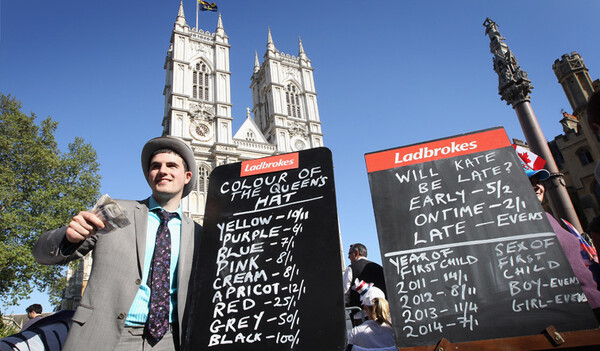 Ladbrokes
COLOUR OF
THE QUEEN'S
HAT
YELLOW - 10/11
PURPLE - 6/1
BLUE - 7/1
PINK - 8/1
CREAM - 8/1
APRICOT - 12/1
RED - 25/1
GREY - 50/1
BLACK - 100/1
Ladbrokes
WILL KATE
BE LATE?
EARLY - 5/2
ONTIME - 2/1
LATE - EVENS
YEAR OF
FIRST CHILD
2011 - 14/1
2012 - 8/11
2013 - 11/4
2014 - 7/1
SEX OF
FIRST
CHILD
BOY - EVENS
GIRL - EVENS